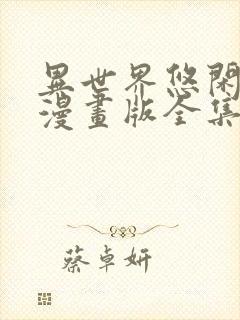 異世界悠閑
漫畫版全集
蔡卓妍